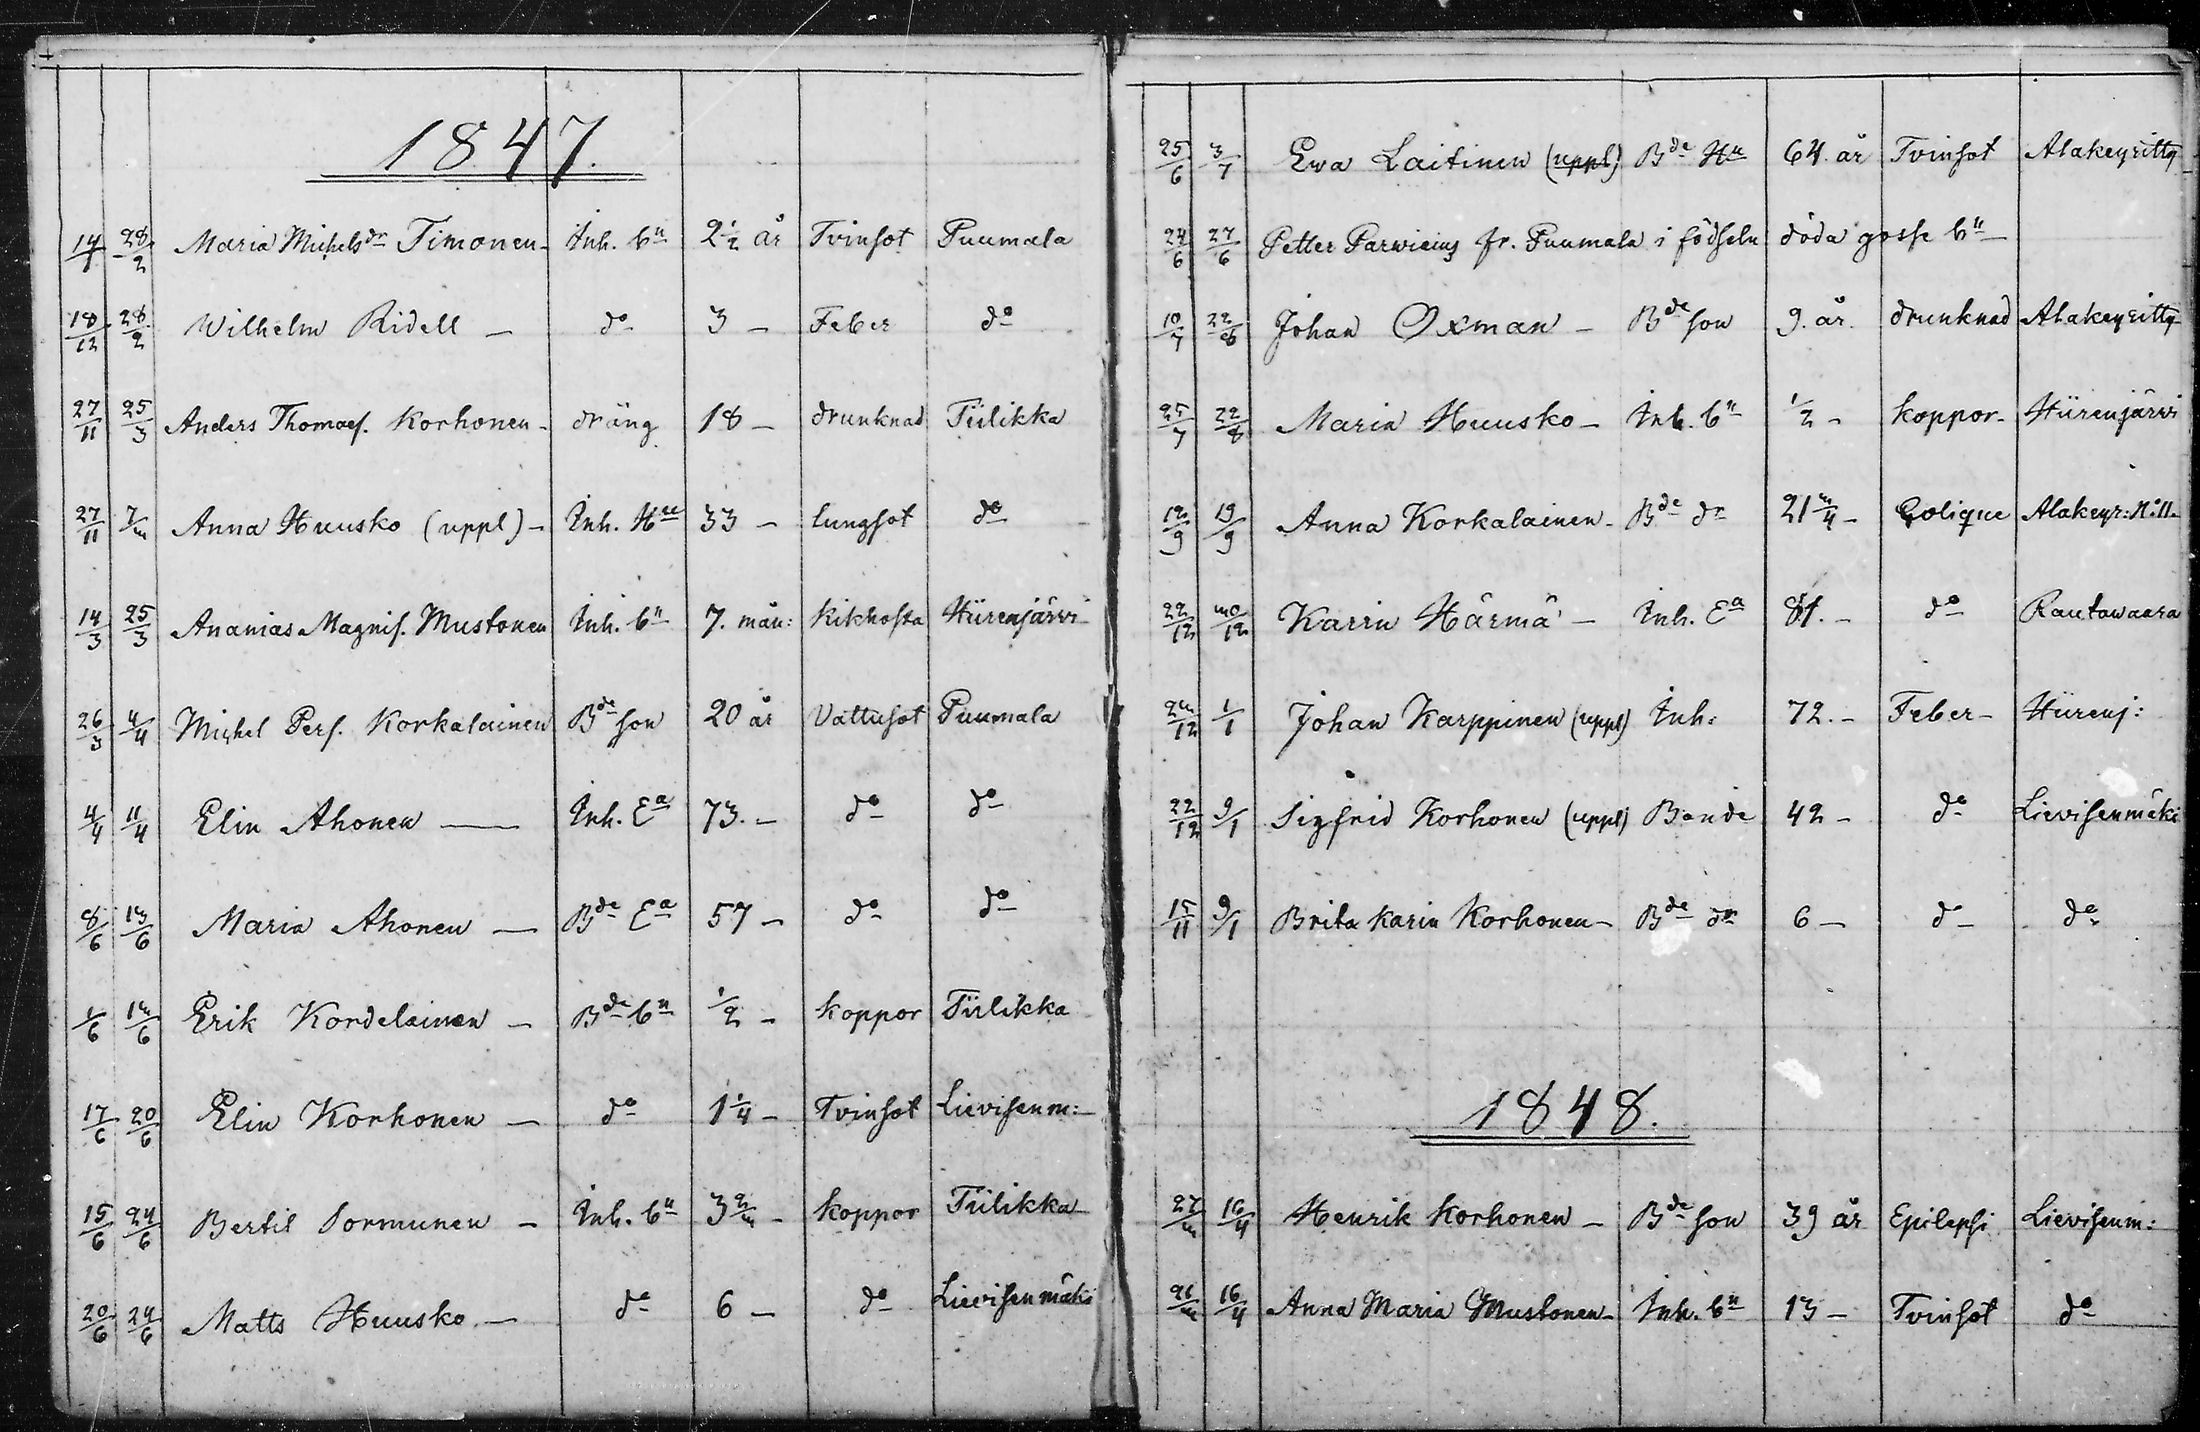 1847.
14/1 28/2 Maria Michelsdr Timonen - Inh. bn 2 1/2 år Tvinsot Puumala
18/12 28/2 Wilhelm Ridell - do 3 - Feber do
27/11 25/3 Anders Thomass. Korhonen - dräng 18 - drunknad Tiilikka
27/11 Anna Huusko (uppl) - Inh. Hu 33 - lungsot do
14/3 25/3 Ananias Magniss. Mustonen Inh. bn 7. mån: kikhosta Hiirenjärvi
26/3 4/4 Michel Perss. Korkalainen Bde son 20 år Vattusot Puumala
4/4 11/4 Elin Ahonen - Inh. Ea 73. - do do
8/6 13/6 Maria Ahonen - Bde Ea 57 - do do
1/6 13/6 Erik Kordelainen - Bde bn 1/2 - koppor Tiilikka
17/6 20/6 Elin Korhonen - do 1 1/4 - Tvinsot Lievisenm:
15/6 24/6 Bertil Sormunen - Inh. bn - koppor Tiilikka
20/6 24/6 Matts Huusko - do 6 - do Lievisenmäki
25/6 3/7 Ewa Laitinen (uppl) Bde Hu 64. år Tvinsot Alakeyritty
24/6 27/6 Petter Parvicius fr. Puumala i födseln döda gosse bn
10/7 22/8 Johan Oxman - Bde son 9. år. drunknad Alakeyritty
25/7 22/8 Maria Huusko - Inh. bn 1/2 - koppor - Hiirenjärvi
12/9 19/9 Anna Korkalainen - Bde dr 21 - Colique Alakeyr: N:11.
22/12 Karin Härmä - Inh. Ea 81. - do Rautawaara
1/1 Johan Karppinen (uppl) Inh: 72. - Feber - Hiirenj:
22/12 9/1 Sigfrid Korhonen (uppl) Bonde 42 - do Lievisenmäki
15/11 9/1 Brita Karin Korhonen - Bde dr 6 - do do
1848.
16/4 Henrik Korhonen - Bde son 39 år Epilepsi Lievisenm:
16/4 Anna Maria Mustonen - Inh. bn 13 - Tvinsot do